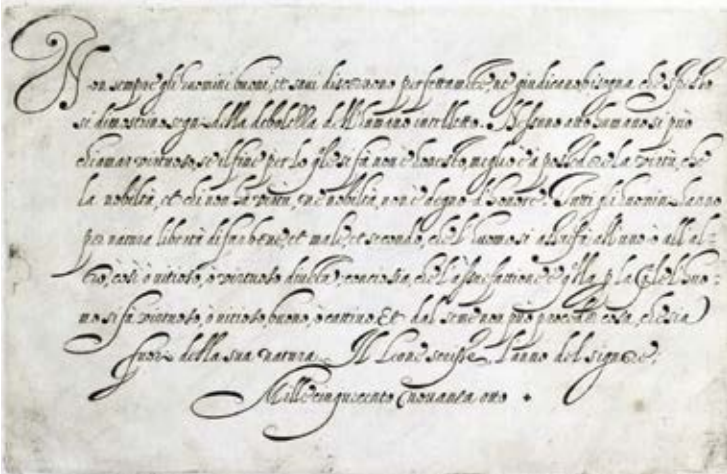 Non sempre gli huomini buoni, et savi discernono perfettamēte, ne giudicano bisogna che spesso
si dimostrino segni della debolella dell'humano intelletto. Nessuno atto humano si può
chiamar virtuoso, se il fine per lo q̄le si fa non è honesto, meglio è a posseder la virtù, che
la nobiltà, et chi non ha virtù, ne nobiltà, non è degno d'honore. Tutti gli huomini hanno
per natura libertà di far bene, et male, et secondo, che l'huomo si assuefà all'uno ò all'al=
tro, così ò vitioso, ò virtuoso diventa, conciosia, che l'assuefattione è q̄lla p la q̄le l'huo=
mo si fà virtuoso, ò vitioso, buono, ò cattivo. Et dal seme non può proceder cosa, che sia
fuori della sua natura. Il Leone scrisse l'anno del signore:
Mille cinquecento novanta otto